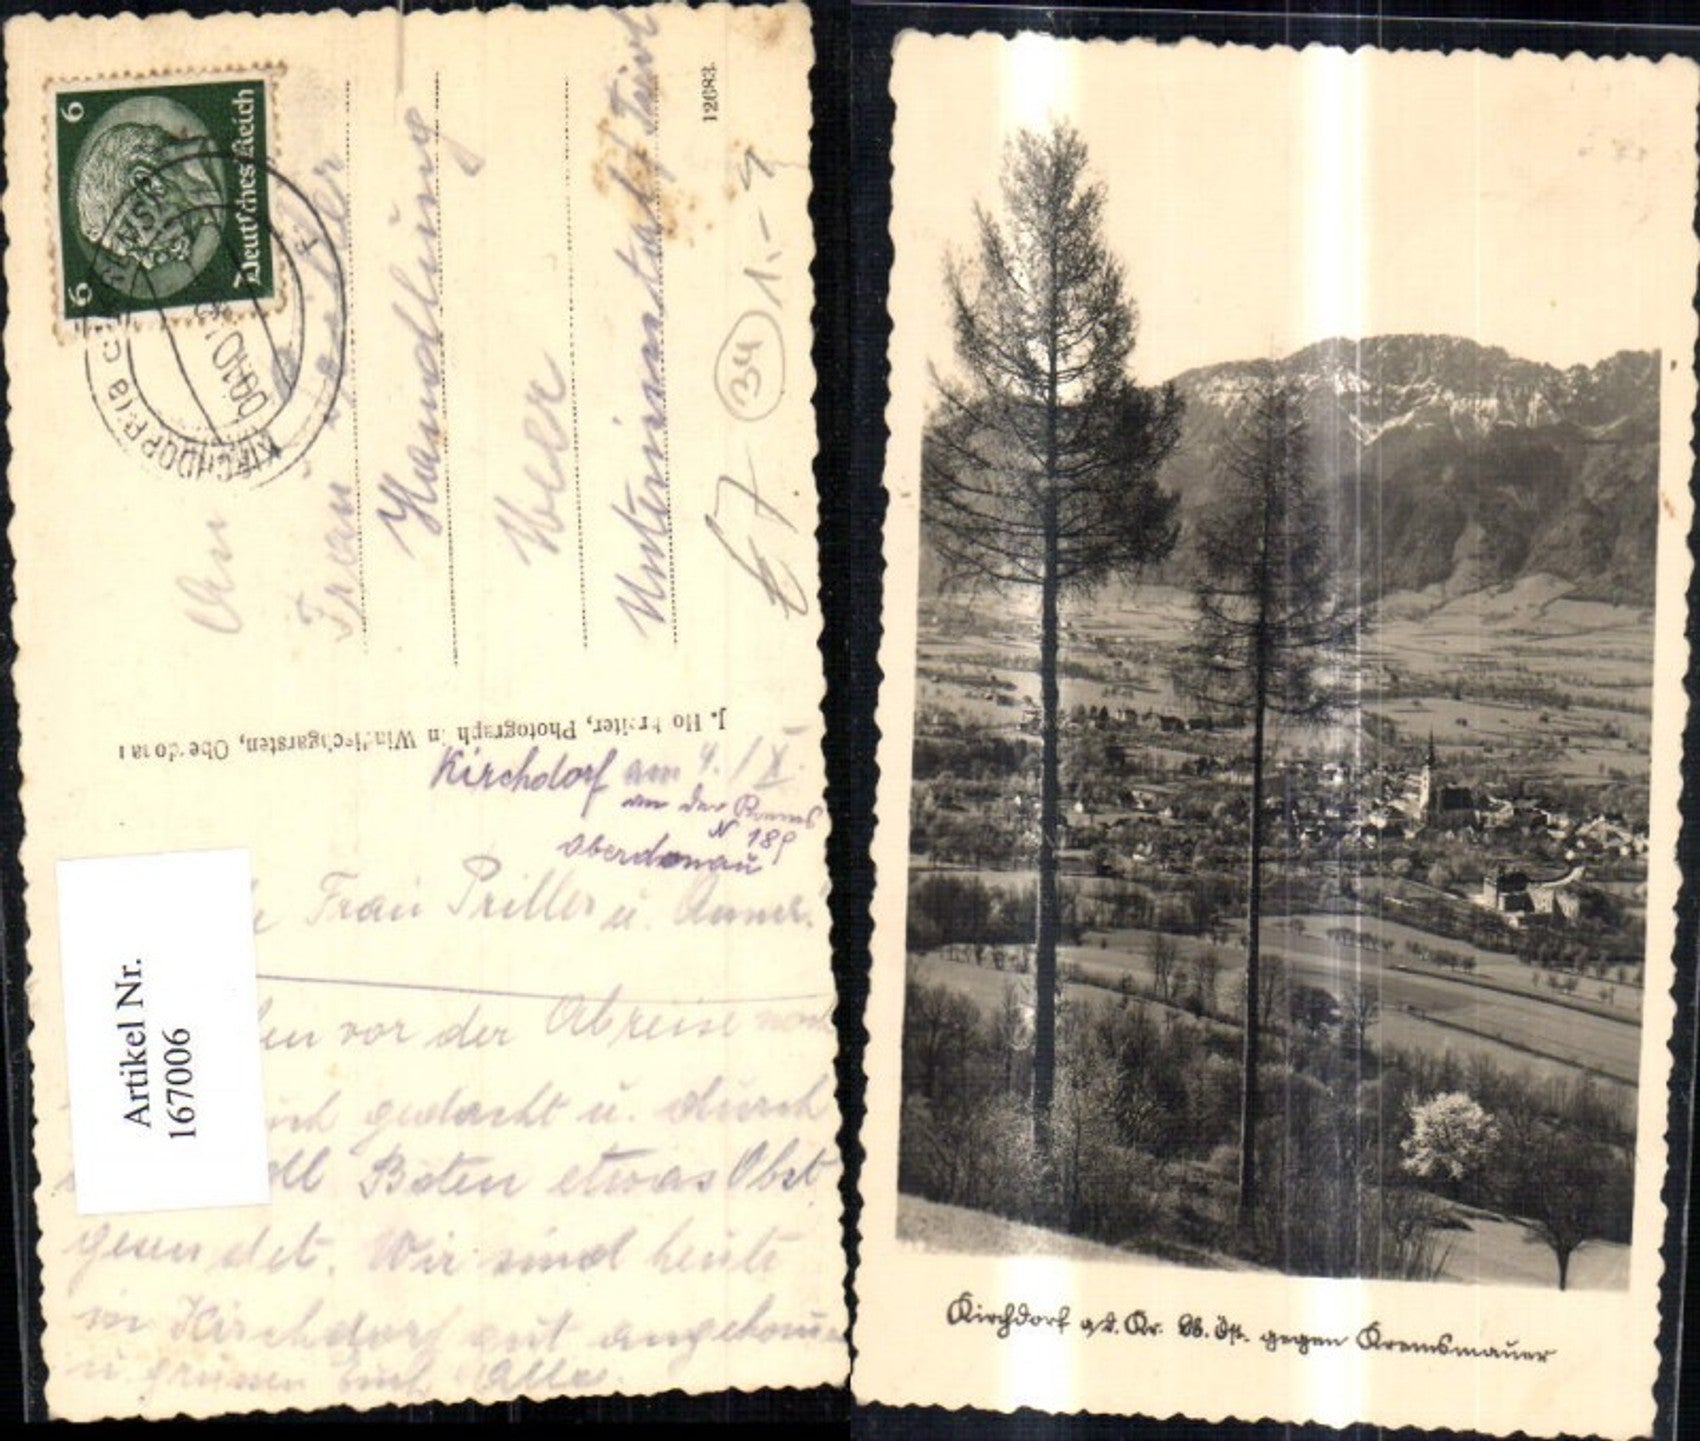 6
6
Deutsches Reich
KIRCHDORF
An
Frau
Handlung
Weer
Unterinnstal / Tirol
12683.
34
1.-
€ 7.
Photograph in Windischgarsten, Oberdonau
Kirchdorf am 4. / X.
an der Krems
N 189
Oberdonau
Frau Priller u. Annerl.
vor der Abreise noch
gedacht u. durch
Boten etwas Obst
gesendet. Wir sind heute
in Kirchdorf gut angekommen
u. grüssen Euch Alle.
Artikel Nr.
167006
Kirchdorf a/d. Kr. Ob. Öst. gegen Kremsmauer